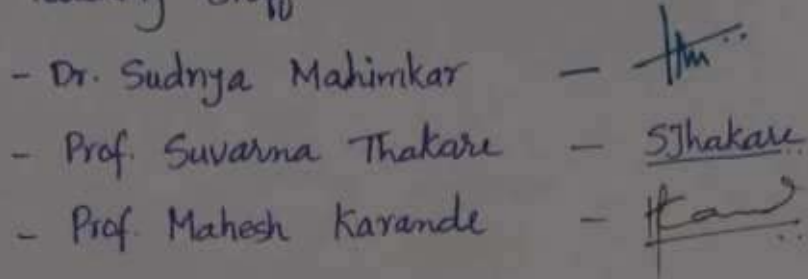 Staff
- Dr. Sudnya Mahimkar -
- Prof. Suvarna Thakare - SThakare
- Prof. Mahesh Karande -